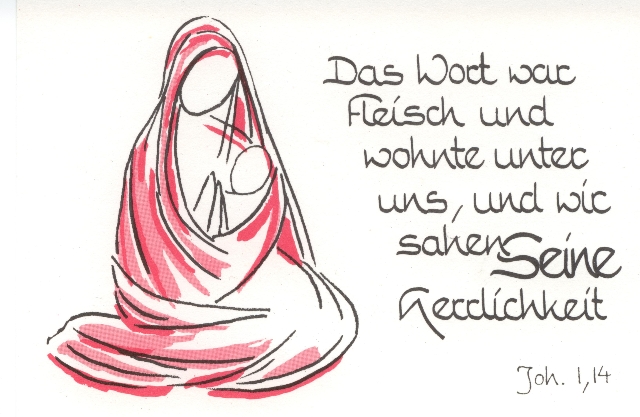 Das Wort war
Fleisch und
wohnte unter
uns, und wir
sahen Seine
Herrlichkeit
Joh. 1,14